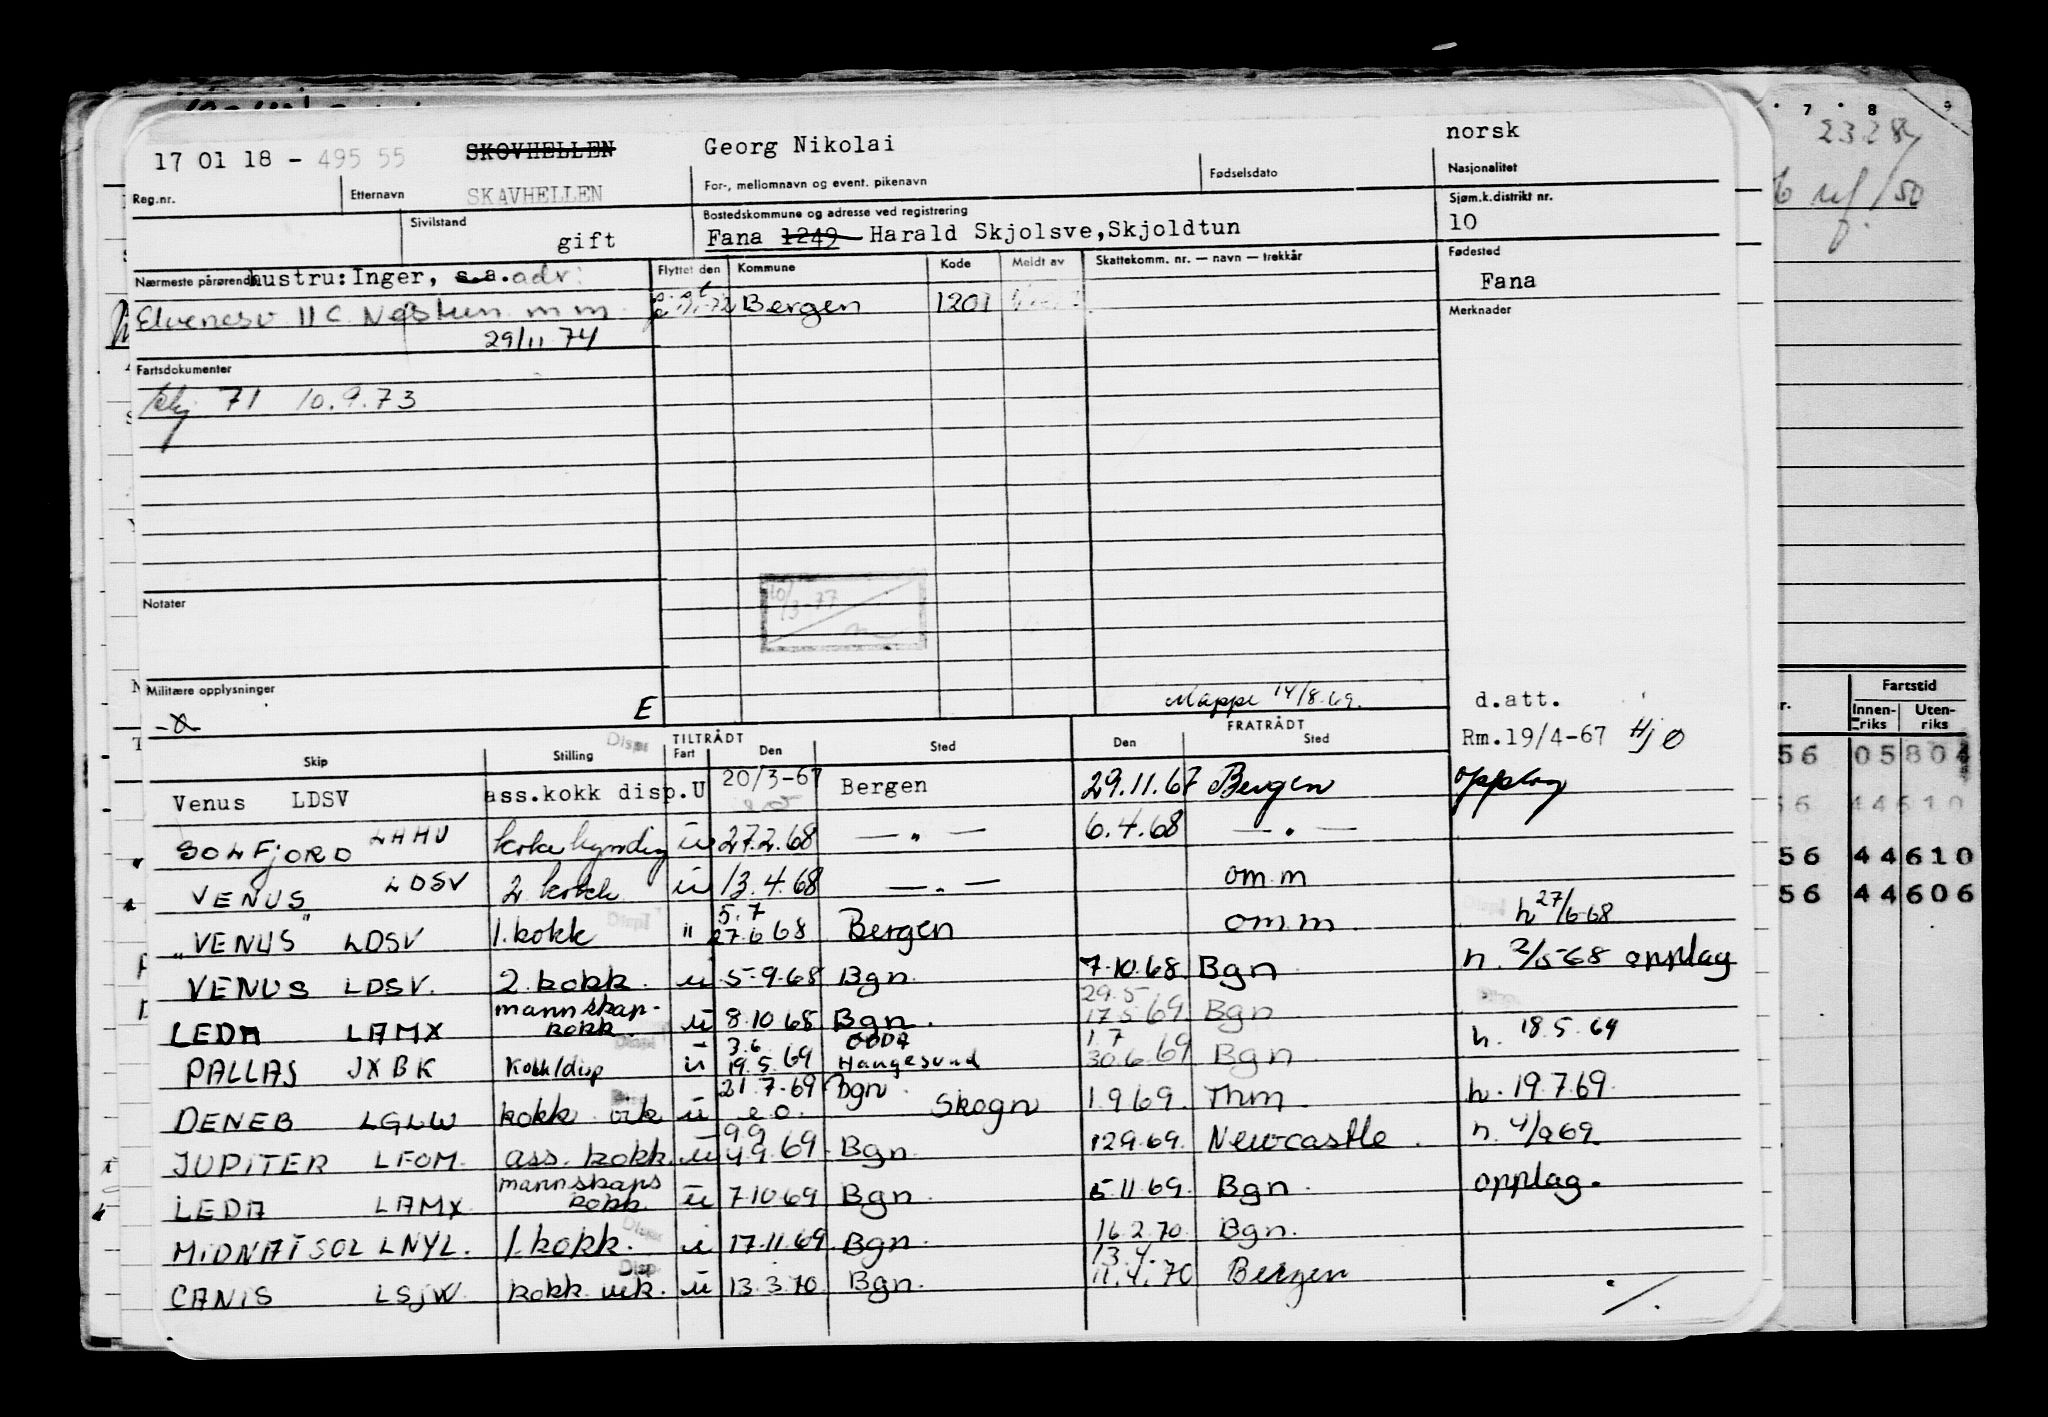 17 01 18 - 495 55 SKOVHELLEN Georg Nikolai norsk
Reg.nr. Etternavn SKAVHELLEN For-, mellomnavn og event. pikenavn Fødselsdato Nasjonalitet
Sivilstand gift Bostedskommune og adresse ved registrering Sjøm.k.distrikt nr.
Fana 1249 Harald Skjolsve,Skjoldtun 10
Nærmeste pårørende hustru:Inger, s.a. adr: Flyttet den Kommune Kode Meldt av Skattekomm. nr. — navn — trekkår Fødested
Fana
Elvenesv 11 C Nesttun m m Bergen 1201 Merknader
29/11 74
Fartsdokumenter
71 10.9.73
10/3-77
Notater
Militære opplysninger
E Mappe 14/8.69. d.att.
TILTRÅDT FRATRÅDT Rm.19/4-67 Hj Ø
Skip Stilling Disp Fart Den Sted Den Sted
Venus LDSV ass.kokk disp.U 20/3-67 Bergen 29.11.67 Bergen opplag
SOLFJORD LHHU u 27.2.68 — " — 6.4.68 — " —
VENUS LDSV 2 kokk u 13.4.68 — " — om.m
5.7
"VENUS" LDSV 1.kokk " 27.6 68 Bergen om m h 27/6-68
VENUS LDSV. 2.kokk. u 5-9.68 Bgn. 7.10.68. Bgn h. 2/5-68 opplag
mannskap- 29.5
LEDA LAMX kokk u 8.10 68 Bgn. 17.5.69 Bgn
3.6 ODDA 1.7 h. 18.5.69
PALLAS JXBK Kokk/disp u 19.5.69 Haugesund 30.6.69 Bgn
21.7.69 Bgn
DENEB LGLW kokk vik u e.o. Skogn 1.9 69. Thm h. 19.7.69.
9.9
JUPITER LFOM. ass. kokk. u 4.9.69. Bgn. 12.9.69. Newcastle. h. 4/9 69
mannskaps
LEDA LAMX kokk. u 7.10.69 Bgn. 5.11.69. Bgn. opplag.
MIDNATSOL LNYL. 1.kokk. i 17.11.69. Bgn. 16.2.70. Bgn.
Disp. 13.4.
CANIS LSJW. kokk vik. u 13.3.70 Bgn. 11.4.70 Bergen ./.
7 8 9
2328
/50
Fartstid
r. Innenriks Utenriks
56 05804
56 44610
56 44610
56 44606